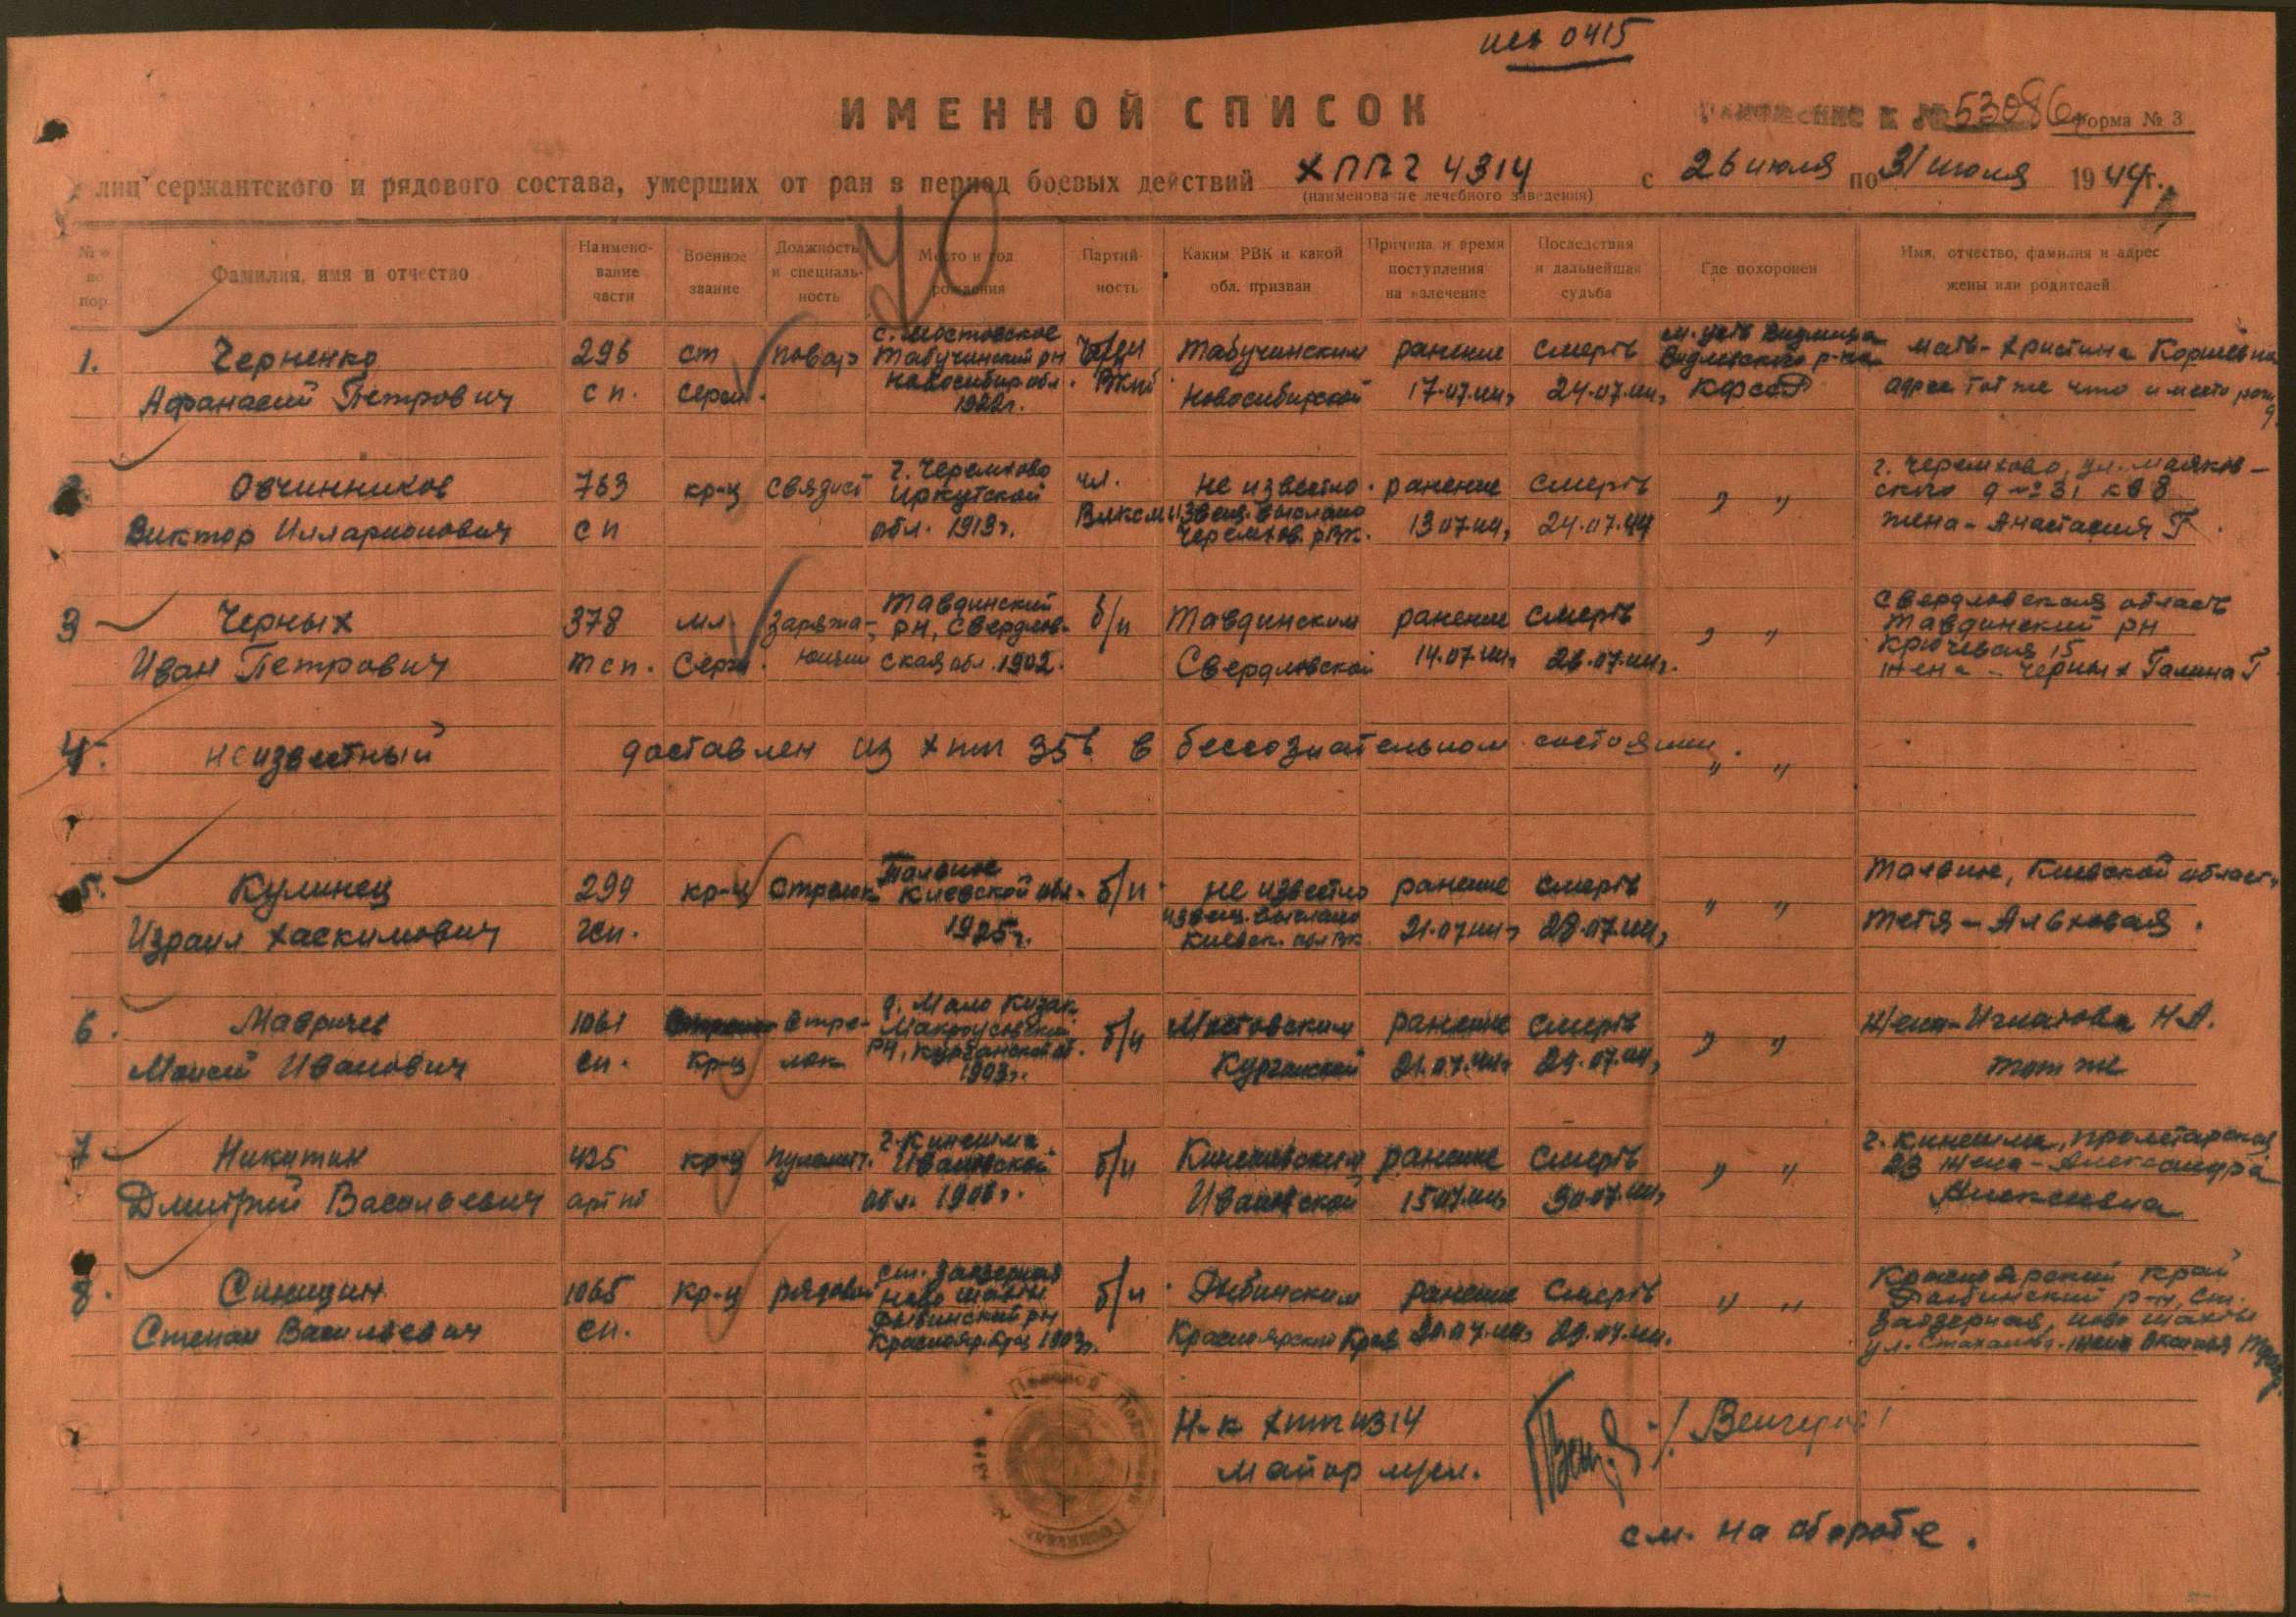 исх 0415
ИМЕННОЙ СПИСОК
к № 53086 форма № 3
лиц сержантского и рядового состава, умерших от ран в период боевых действий ХППГ 4314 с 26 июля по 31 июля 1944г.
(наименование лечебного заведения)
№№ по пор
Фамилия, имя и отчество
Наимено-
вание
части
Военное
звание
Должность
и специаль-
ность
Место и год
рождения
Партий-
ность
Каким РВК и какой
обл. призван
Причина и время
поступления
на излечение
Последствия
и дальнейшая
судьба
Где похоронен
Имя, отчество, фамилия и адрес
жены или родителей
70
1. Черненко
Афанасий Петрович
296
сп.
ст
серж.
повар
с. Мостовское
Табучинский рн
Новосибир обл.
1922г.
ВКПб
Табучинским
Новосибирской
ранение
17.07.44г
смерть
24.07.44г
м. усть Видлица
Видлитского р-на
КФССР
мать - Христина
адрес тот же что и место рожд
Овчинников
Виктор Илларионович
763
сп
кр-ц
связист
г. Черемхово
Иркутской
обл. 1919г.
чл.
ВЛКСМ
не известно.
извещ. выслано
Черемхов. рвк.
ранение
13 07.44г
смерть
24.07.44
" "
г. Черемхово, ул. Маяков-
ского д № 31 кв 8
жена - Анастасия Г.
3 Черных
Иван Петрович
378
тсп.
мл
серж.
заряжа-
ющий
Тавдинский
рн, Свердлов-
ская обл. 1902.
б/п
Тавдинским
Свердловской
ранение
14.07.44г
смерть
26.07.44г.
" "
Свердловская область
Тавдинский рн
15
жена - Черных Галина Г
4. неизвестный
доставлен из хппг 356 в бессознательном состоянии.
" "
5. Кулинец
Израил Хаскимович
299
кр-ц
стрелок
Киевской обл.
1925г.
б/п
не известно
извещ. выслано
Киевск. облвк
ранение
21.07.44г
смерть
28.07.44г
" "
Киевской област.
тетя - Альховая.
6. Мавричев
Моисей Иванович
1061
сп.
кр-ц
стре-
лок
д. Мало Кизак
рн, Курганской об.
1903г.
б/п
Мостовским
Курганской
ранение
21.07.44г
смерть
29.07.44г
" "
Жена - Игнатова Н.А.
там же
7 Никитин
Дмитрий Васильевич
425
арт пб
кр-ц
пулемет.
г. Кинешма
Ивановской
обл. 1906г.
б/п
Кинешемским
Ивановской
ранение
15.07.44г
смерть
30.07.44г
" "
г. Кинешма, Пролетарская
23 жена - Александра
Алексеевна
8. Синицин
Степан Васильевич
1065
сп.
кр-ц
рядовой
ст. Заозерная
ново шахты
Рыбинский рн
Краснояр. край 1903г.
б/п
Рыбинским
Красноярский край
ранение
20.07.44г
смерть
29.07.44г.
" "
Красноярский край
Рыбинский р-н, ст.
Заозерная, ново шахты
ул. Стаханова. жена
Н-к хппг 4314
майор м/сл.
см. на обороте.